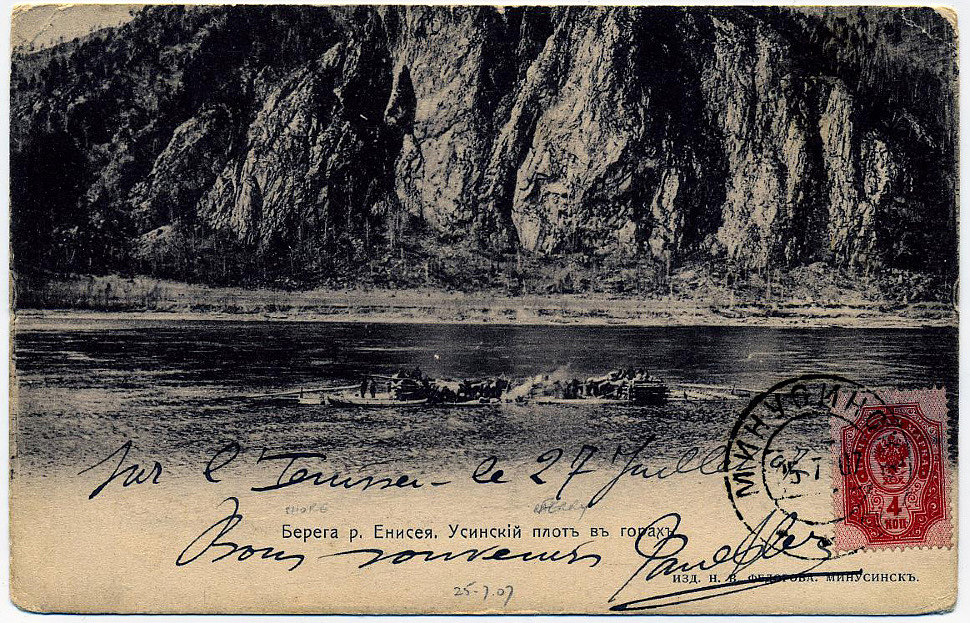 Sur l'Ienisseï - le 27 Juillet
SHORE FERRY
Берега р. Енисея. Усинскій плотъ въ горахъ.
Bons souvenirs Paul
ИЗД. Н. В. ФЕДОРОВА. МИНУСИНСКЪ.
25-7.07
МИНУСИНС
4
КОП